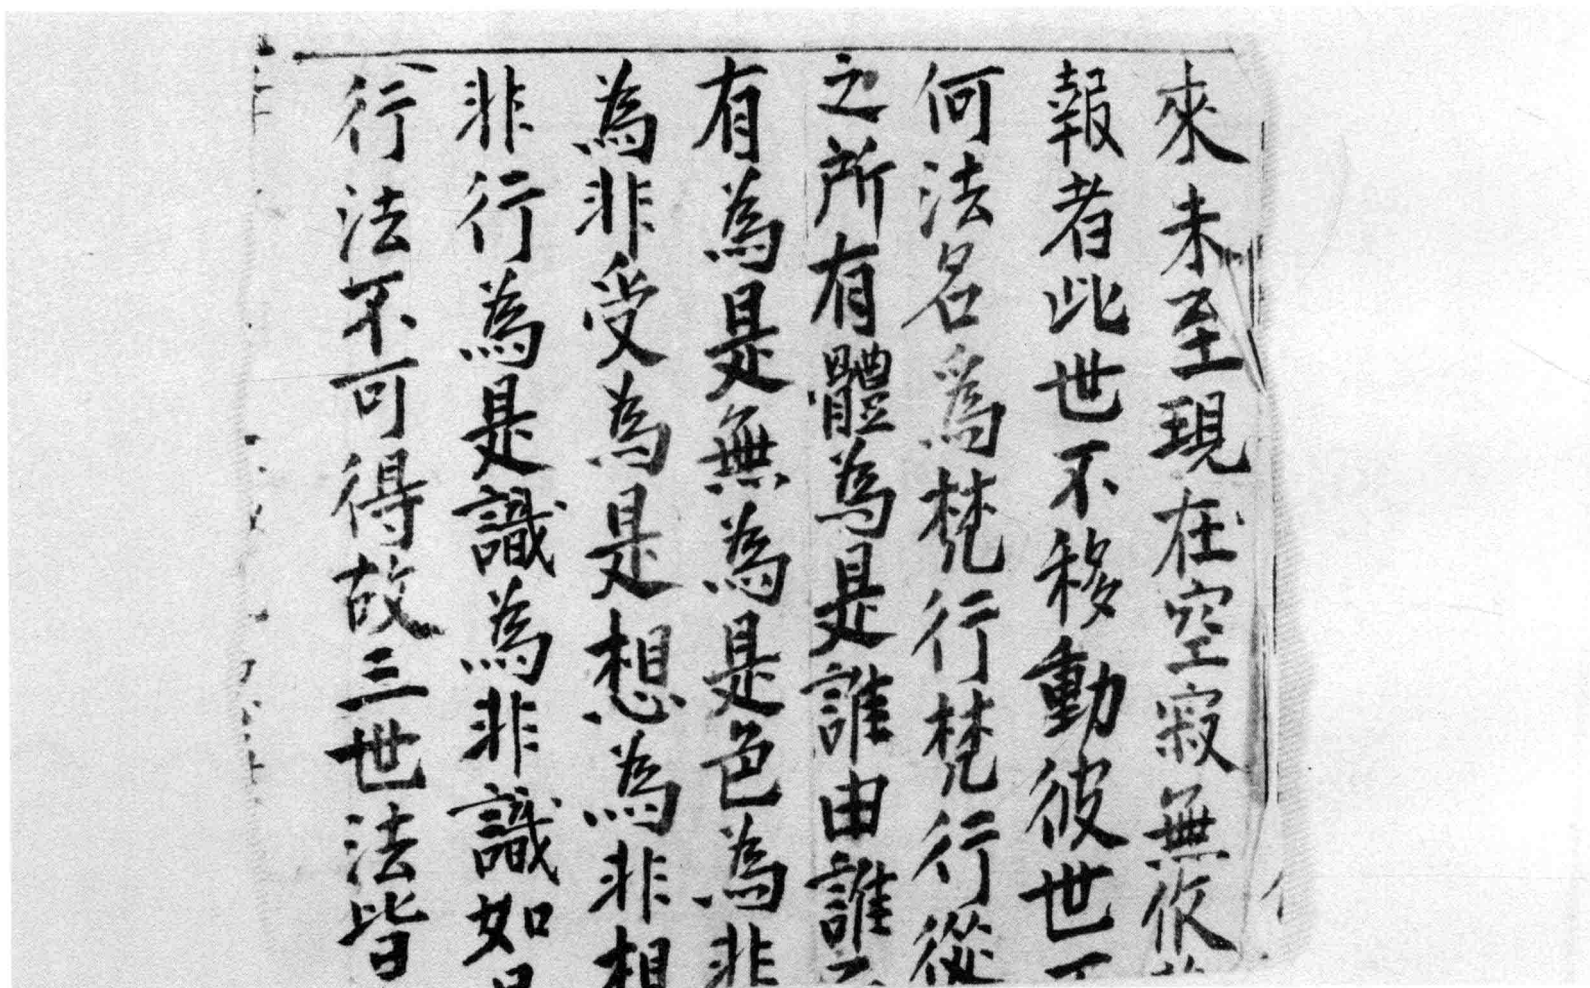 來未至現在空寂無作
報者此世不移動彼世
何法名為梵行梵行從
之所有體為是誰由誰
有為是無為是色為非
為非受為是想為非想
非行為是識為非識如
行法不可得故三世法皆